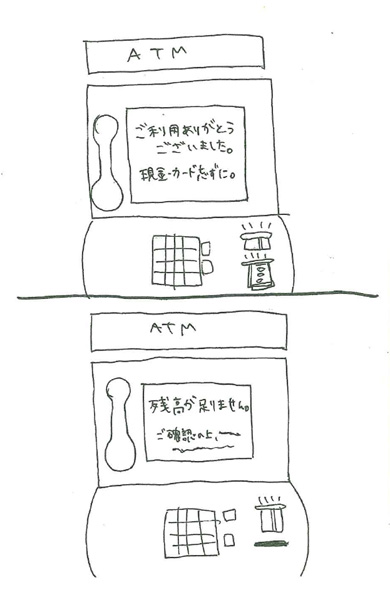 ATM
ご利用ありがとう
ございました。
現金・カード忘ずに。
ATM
残高が足りません。
ご確認の上、